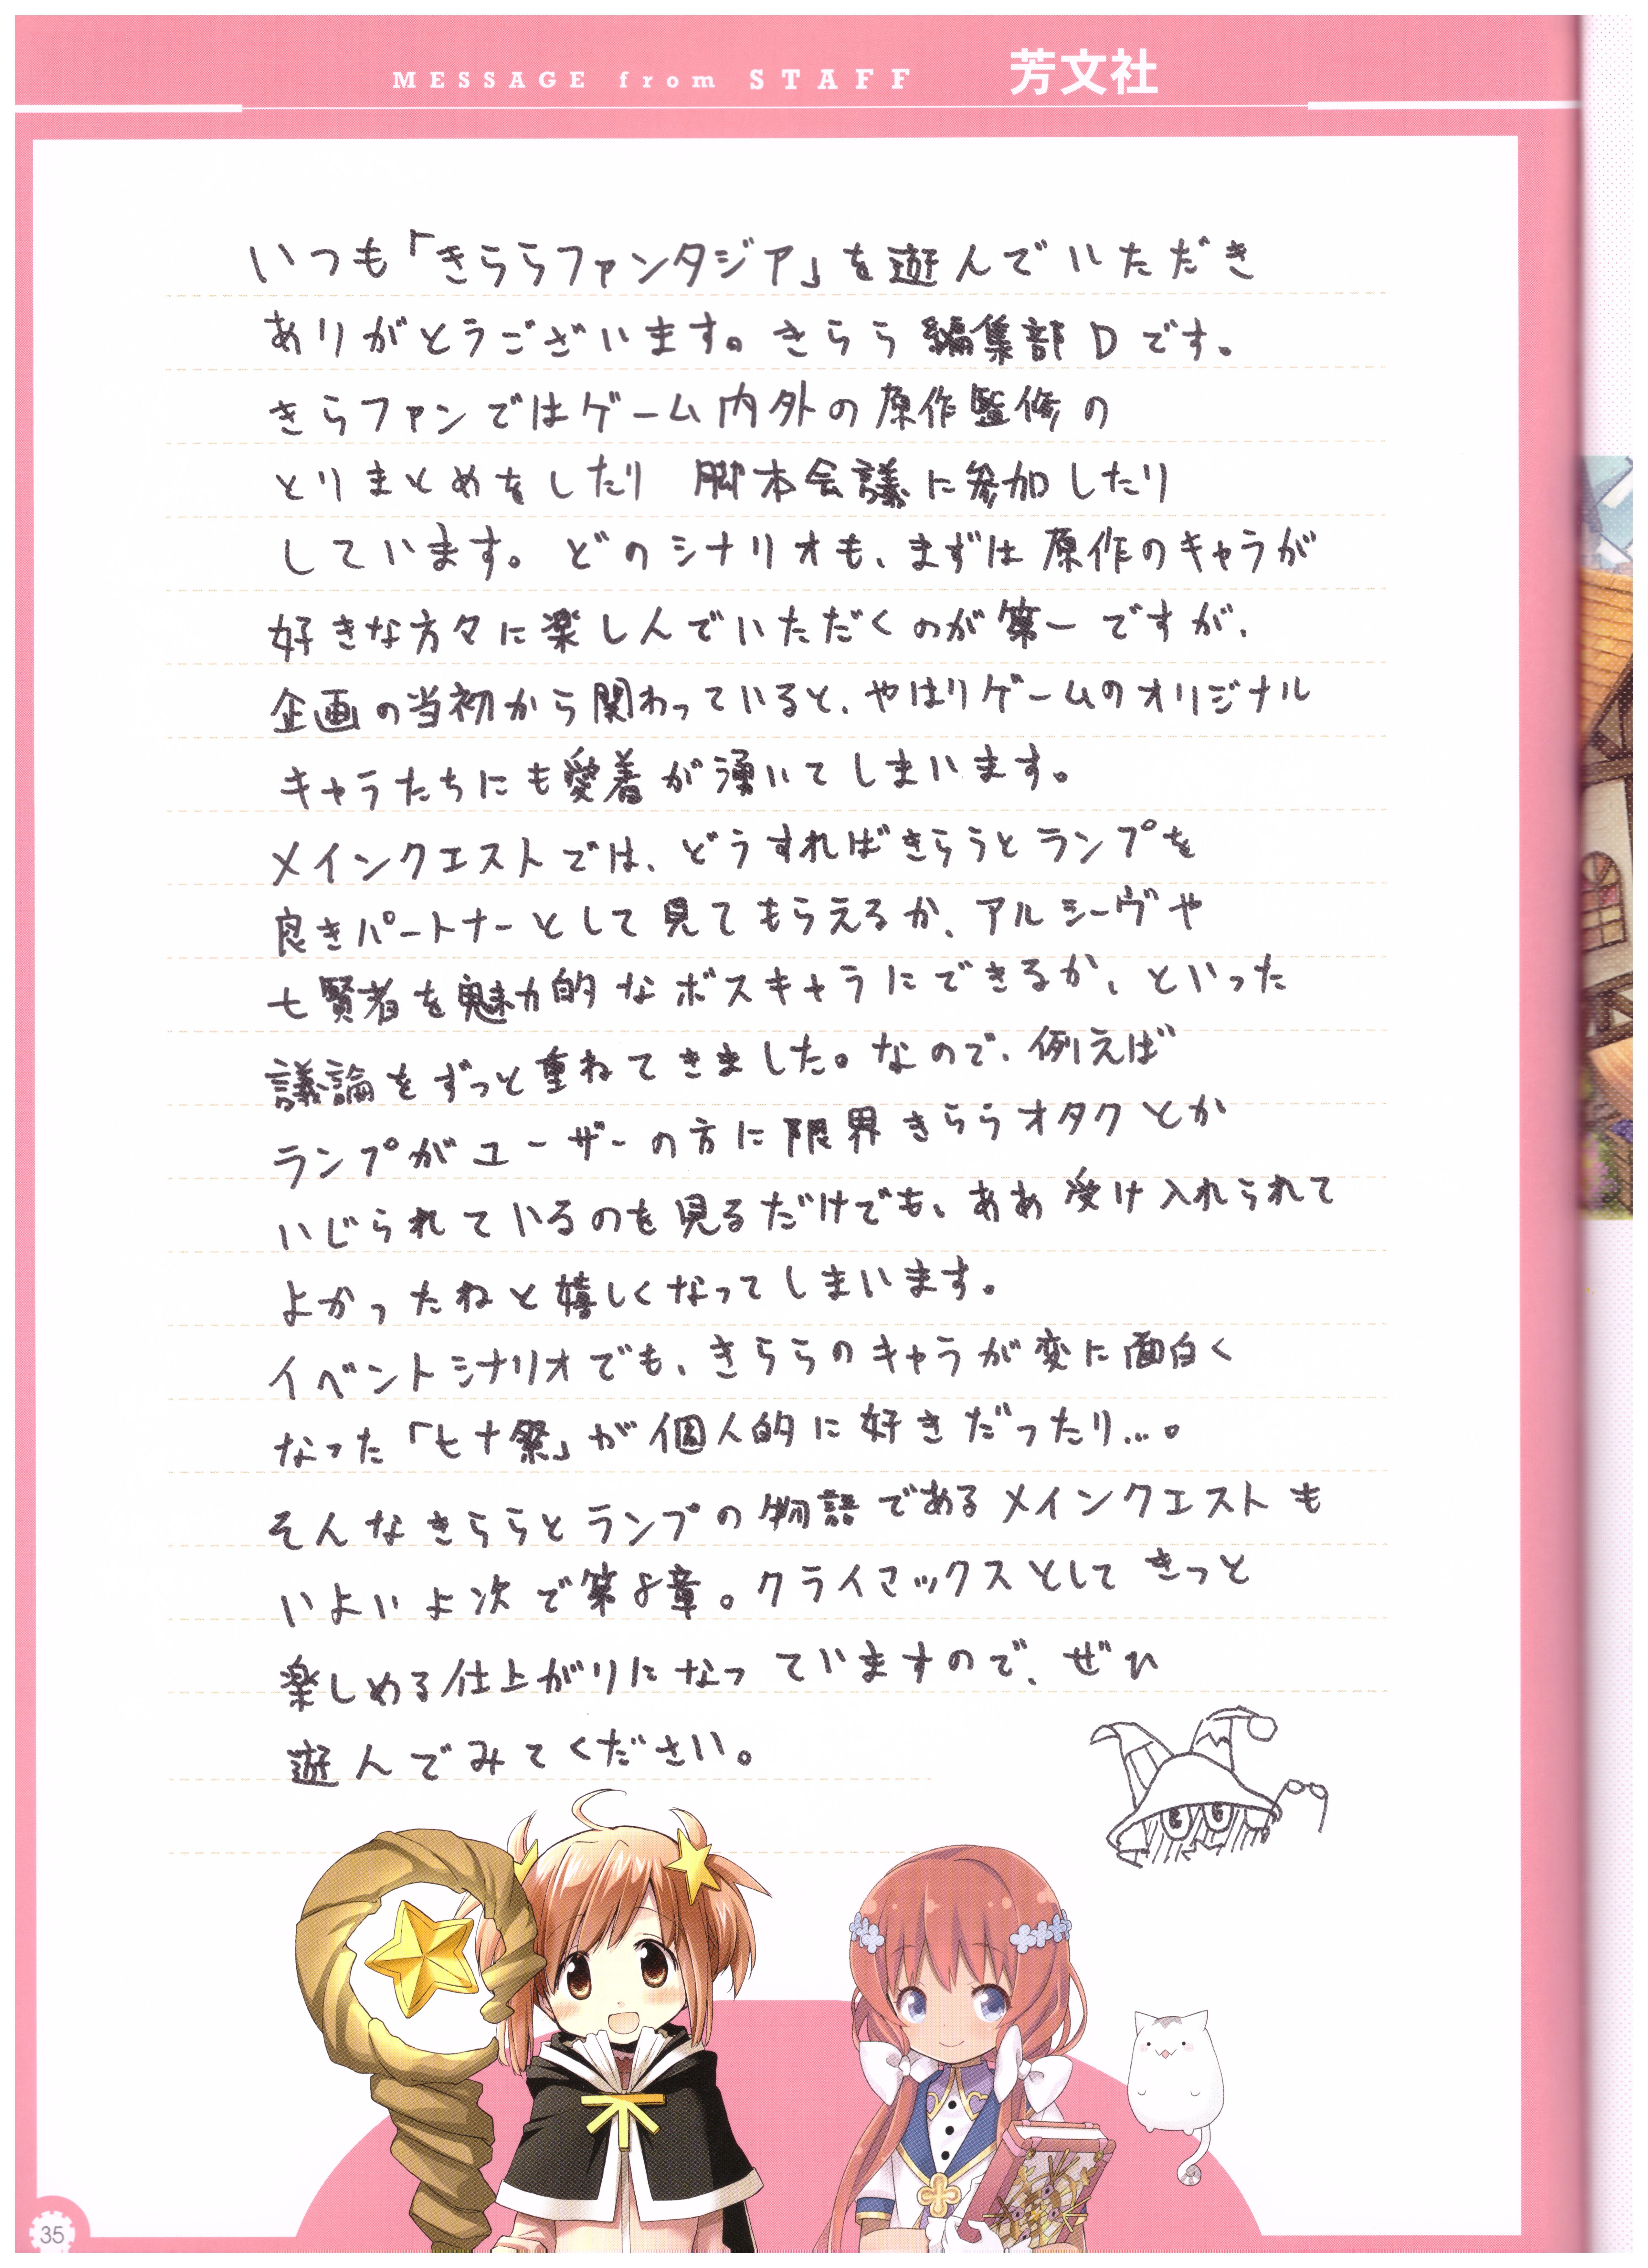 MESSAGE from STAFF 芳文社
いつも「きららファンタジア」を遊んでいただき
ありがとうございます。きらら編集部Dです。
きらファンではゲーム内外の原作監修の
とりまとめをしたり 脚本会議に参加したり
しています。どのシナリオも、まずは原作のキャラが
好きな方々に楽しんでいただくのが第一ですが、
企画の当初から関わっていると、やはりゲームのオリジナル
キャラたちにも愛着が湧いてしまいます。
メインクエストでは、どうすればきららとランプを
良きパートナーとして見てもらえるか、アルシーヴや
七賢者を魅力的なボスキャラにできるか、といった
議論をずっと重ねてきました。なので、例えば
ランプがユーザーの方に限界きららオタクとか
いじられているのを見るだけでも、ああ受け入れられて
よかったねと嬉しくなってしまいます。
イベントシナリオでも、きららのキャラが変に面白く
なった「ヒナ祭」が個人的に好きだったり...。
そんなきららとランプの物語であるメインクエストも
いよいよ次で第8章。クライマックスとしてきっと
楽しめる仕上がりになっていますので、ぜひ
遊んでみてください。
35